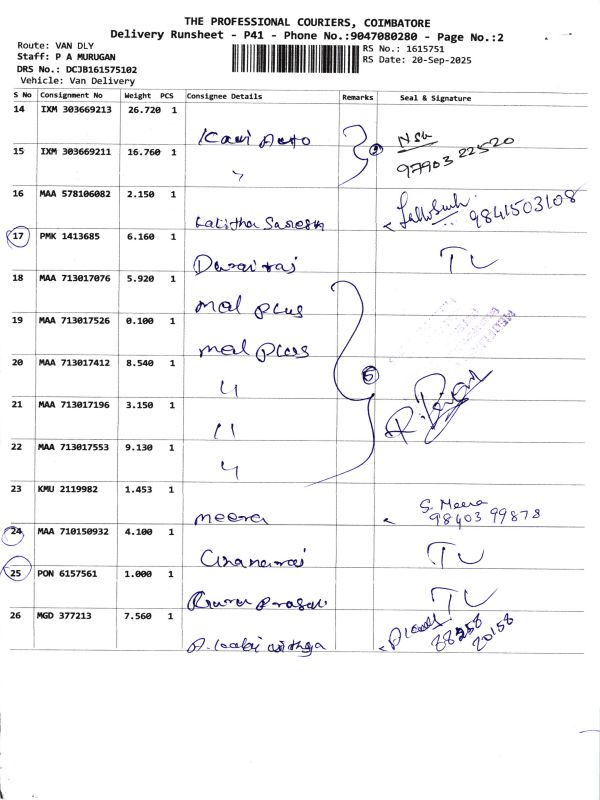 THE PROFESSIONAL COURIERS, COIMBATORE
Delivery Runsheet - P41 - Phone No.:9047080280 - Page No.:2
Route: VAN DLY
RS No.: 1615751
Staff: P A MURUGAN
RS Date: 20-Sep-2025
DRS No.: DCJB161575102
Vehicle: Van Delivery
S No Consignment No Weight PCS Consignee Details Remarks Seal & Signature
14 IXM 303669213 26.720 1 Kavi Auto
15 IXM 303669211 16.760 1 " 2 97903 22520
16 MAA 578106082 2.150 1 Lalitha Suresh 9841503108
17 PMK 1413685 6.160 1 Durairaj TL
18 MAA 713017076 5.920 1 med plus
19 MAA 713017526 0.100 1 med plus
20 MAA 713017412 8.540 1 " 5
21 MAA 713017196 3.150 1 "
22 MAA 713017553 9.130 1 "
23 KMU 2119982 1.453 1 meera S. Meera 98403 99878
24 MAA 710150932 4.100 1 TL
25 PON 6157561 1.000 1 Prasad TL
26 MGD 377213 7.560 1 88258 20158